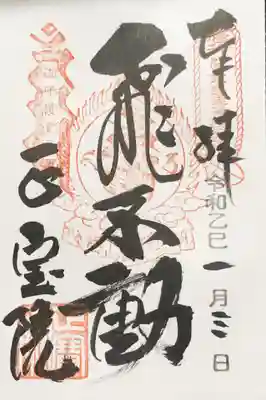 奉拝
令和乙巳
一月三日
飛不動
正宝院